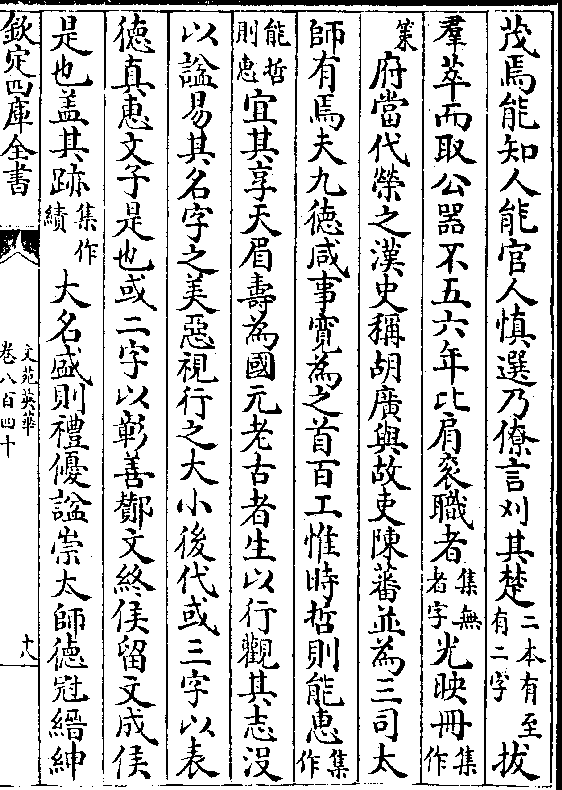 茂焉能知人能官人慎選乃僚言刈其楚二本有至有二字拔
羣萃而取公器不五六年比肩衮職者集無者字光映冊集作
䇿府當代榮之漢史稱胡廣與故吏陳蕃並為三司太
師有焉夫九德咸事寛為之首百工惟時哲則能惠集作
能哲則惠宜其享天眉壽為國元老古者生以行觀其志沒
以諡易其名字之美惡視行之大小後代或三字以表
德真惠文子是也或二字以彰善酇文終侯留文成侯
是也盖其跡集作績大名盛則禮優諡崇太師德冠縉紳
欽定四庫全書
文苑英華
卷八百四十
十八